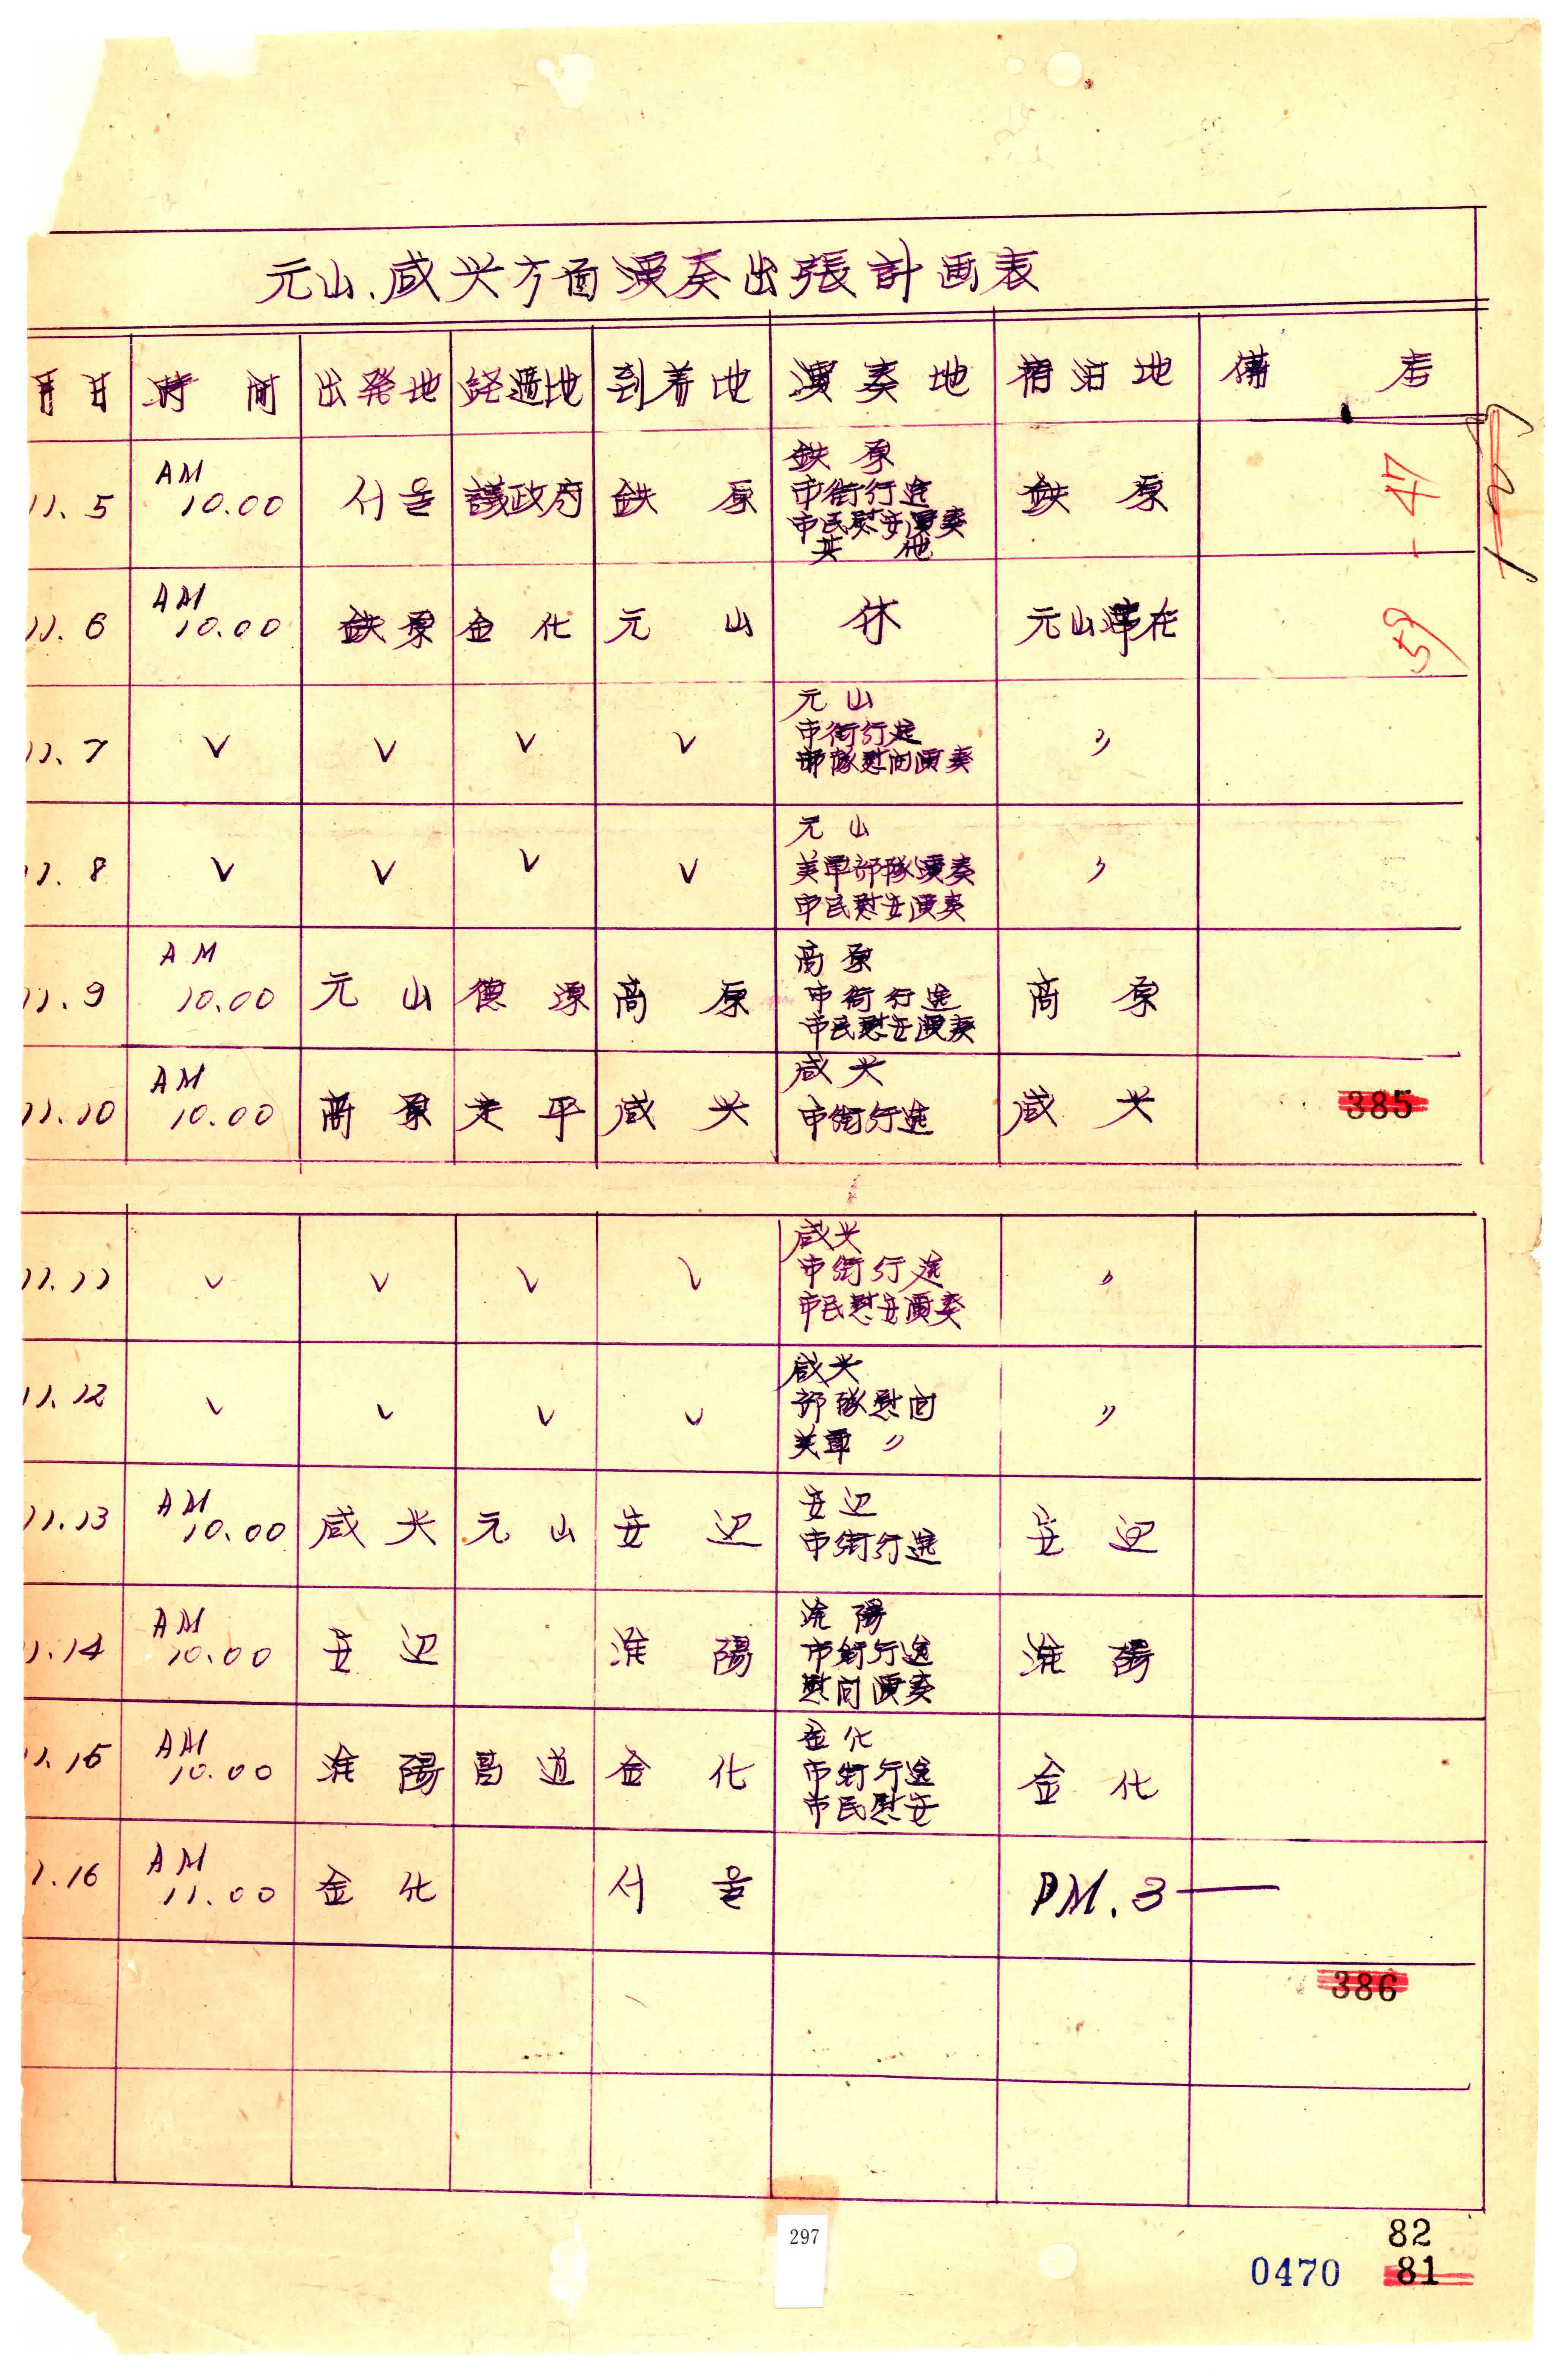 元山、咸兴方面演奏出張計画表
月日 時間 出発地 経過地 到着地 演奏地 宿泊地 備考
11.5 AM 10.00 서울 議政府 鉄原 鉄原 鉄原
市街行進
市民慰安演奏
其他
- 47
11.6 AM 10.00 鉄原 金化 元山 休 元山滞在
59
11.7 ∨ ∨ ∨ ∨ 元山 〃
市街行進
部隊慰問演奏
11.8 ∨ ∨ ∨ ∨ 元山 〃
美軍部隊演奏
市民慰安演奏
11.9 AM 10.00 元山 德源 高原 高原 高原
市街行進
市民慰安演奏
11.10 AM 10.00 高原 定平 咸兴 咸兴 咸兴
市街行進
385
11.11 ∨ ∨ ∨ ∨ 咸兴 〃
市街行進
市民慰安演奏
11.12 ∨ ∨ ∨ ∨ 咸兴 〃
部隊慰問
美軍 〃
11.13 AM 10.00 咸兴 元山 安辺 安辺 安辺
市街行進
1.14 AM 10.00 安辺 淮陽 淮陽 淮陽
市街行進
慰问演奏
1.15 AM 10.00 淮陽 昌道 金化 金化 金化
市街行進
市民慰安
1.16 AM 11.00 金化 서울 PM.3—
386
297
82
0470 81